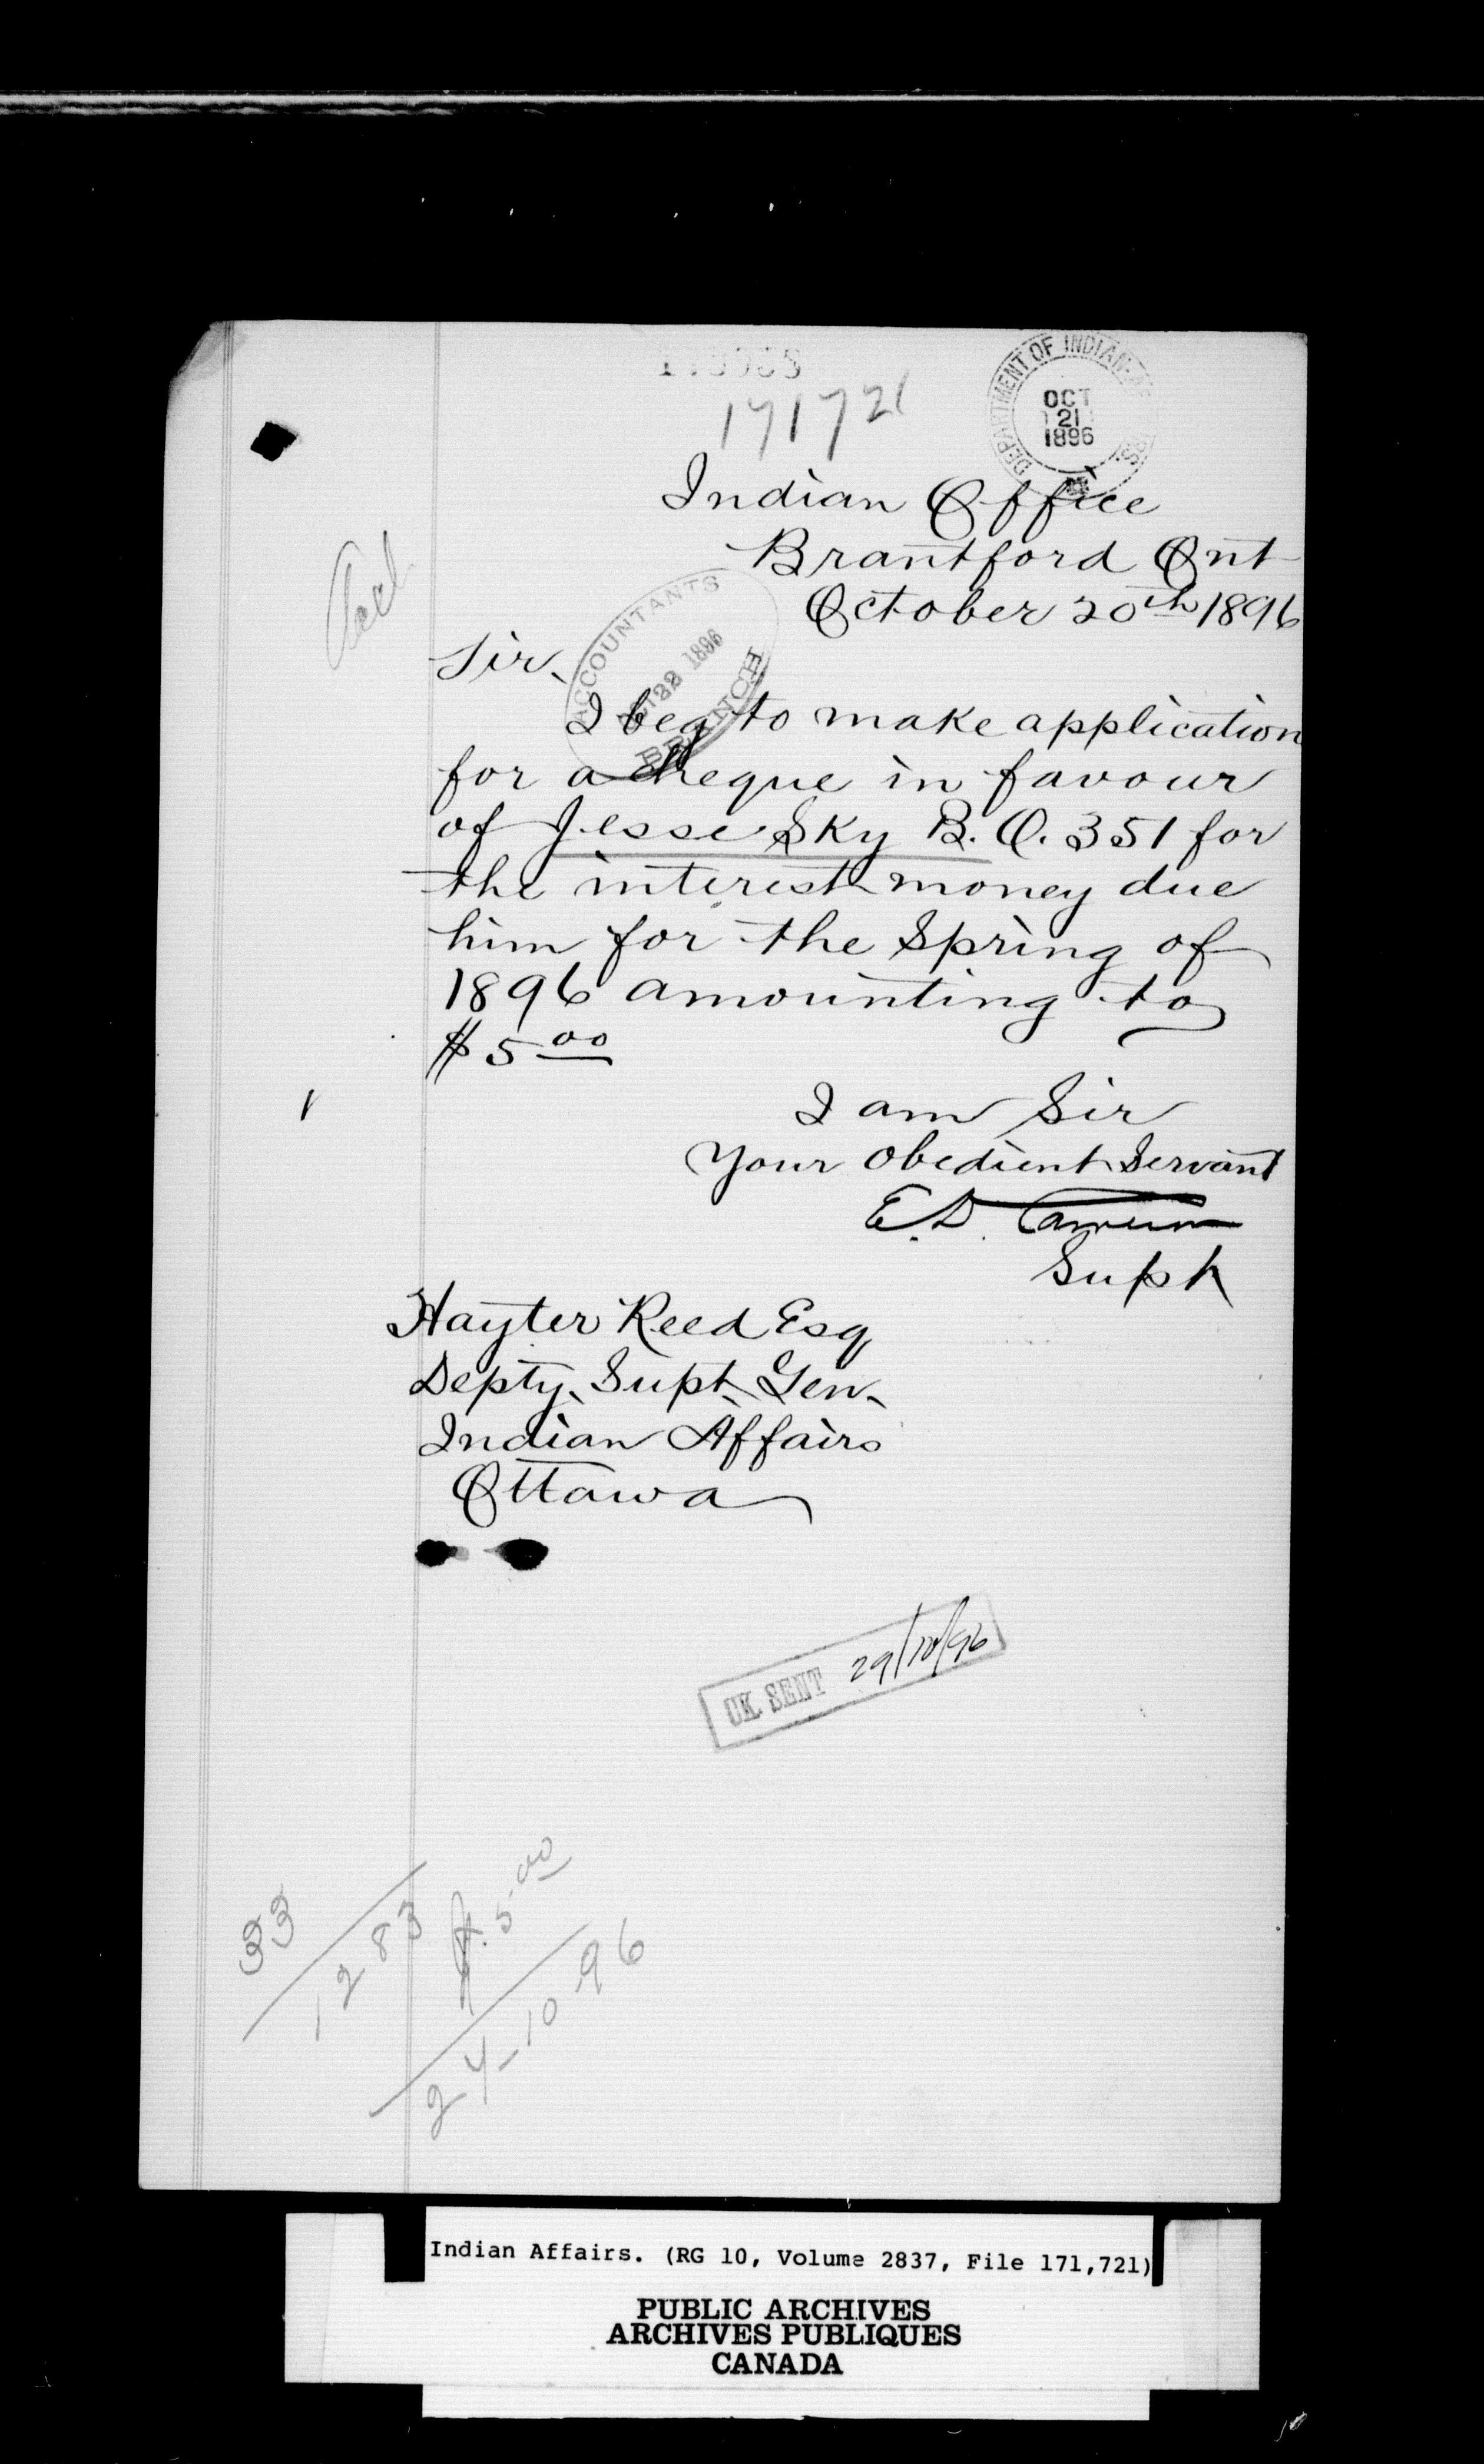 171721
DEPARTMENT OF INDIAN
OCT
21
1896
Indian Office
Brantford Ont
October 20th 1896
Acct
ACCOUNTANTS
1896
BRANCH
Sir,
I beg to make application
for a cheque in favour
of Jesse Sky B. O. 351 for
the interest money due
him for the Spring of
1896 amounting to
$5 00
I am Sir
Your Obedient Servant
E.D. Cameron
Supt
Hayter Reed Esq
Depty. Supt. Gen.
Indian Affairs
Ottawa
CK. SENT 29/10/96
33
1283
5.00
24-10 96
Indian Affairs. (RG 10, Volume 2837, File 171,721)
PUBLIC ARCHIVES
ARCHIVES PUBLIQUES
CANADA